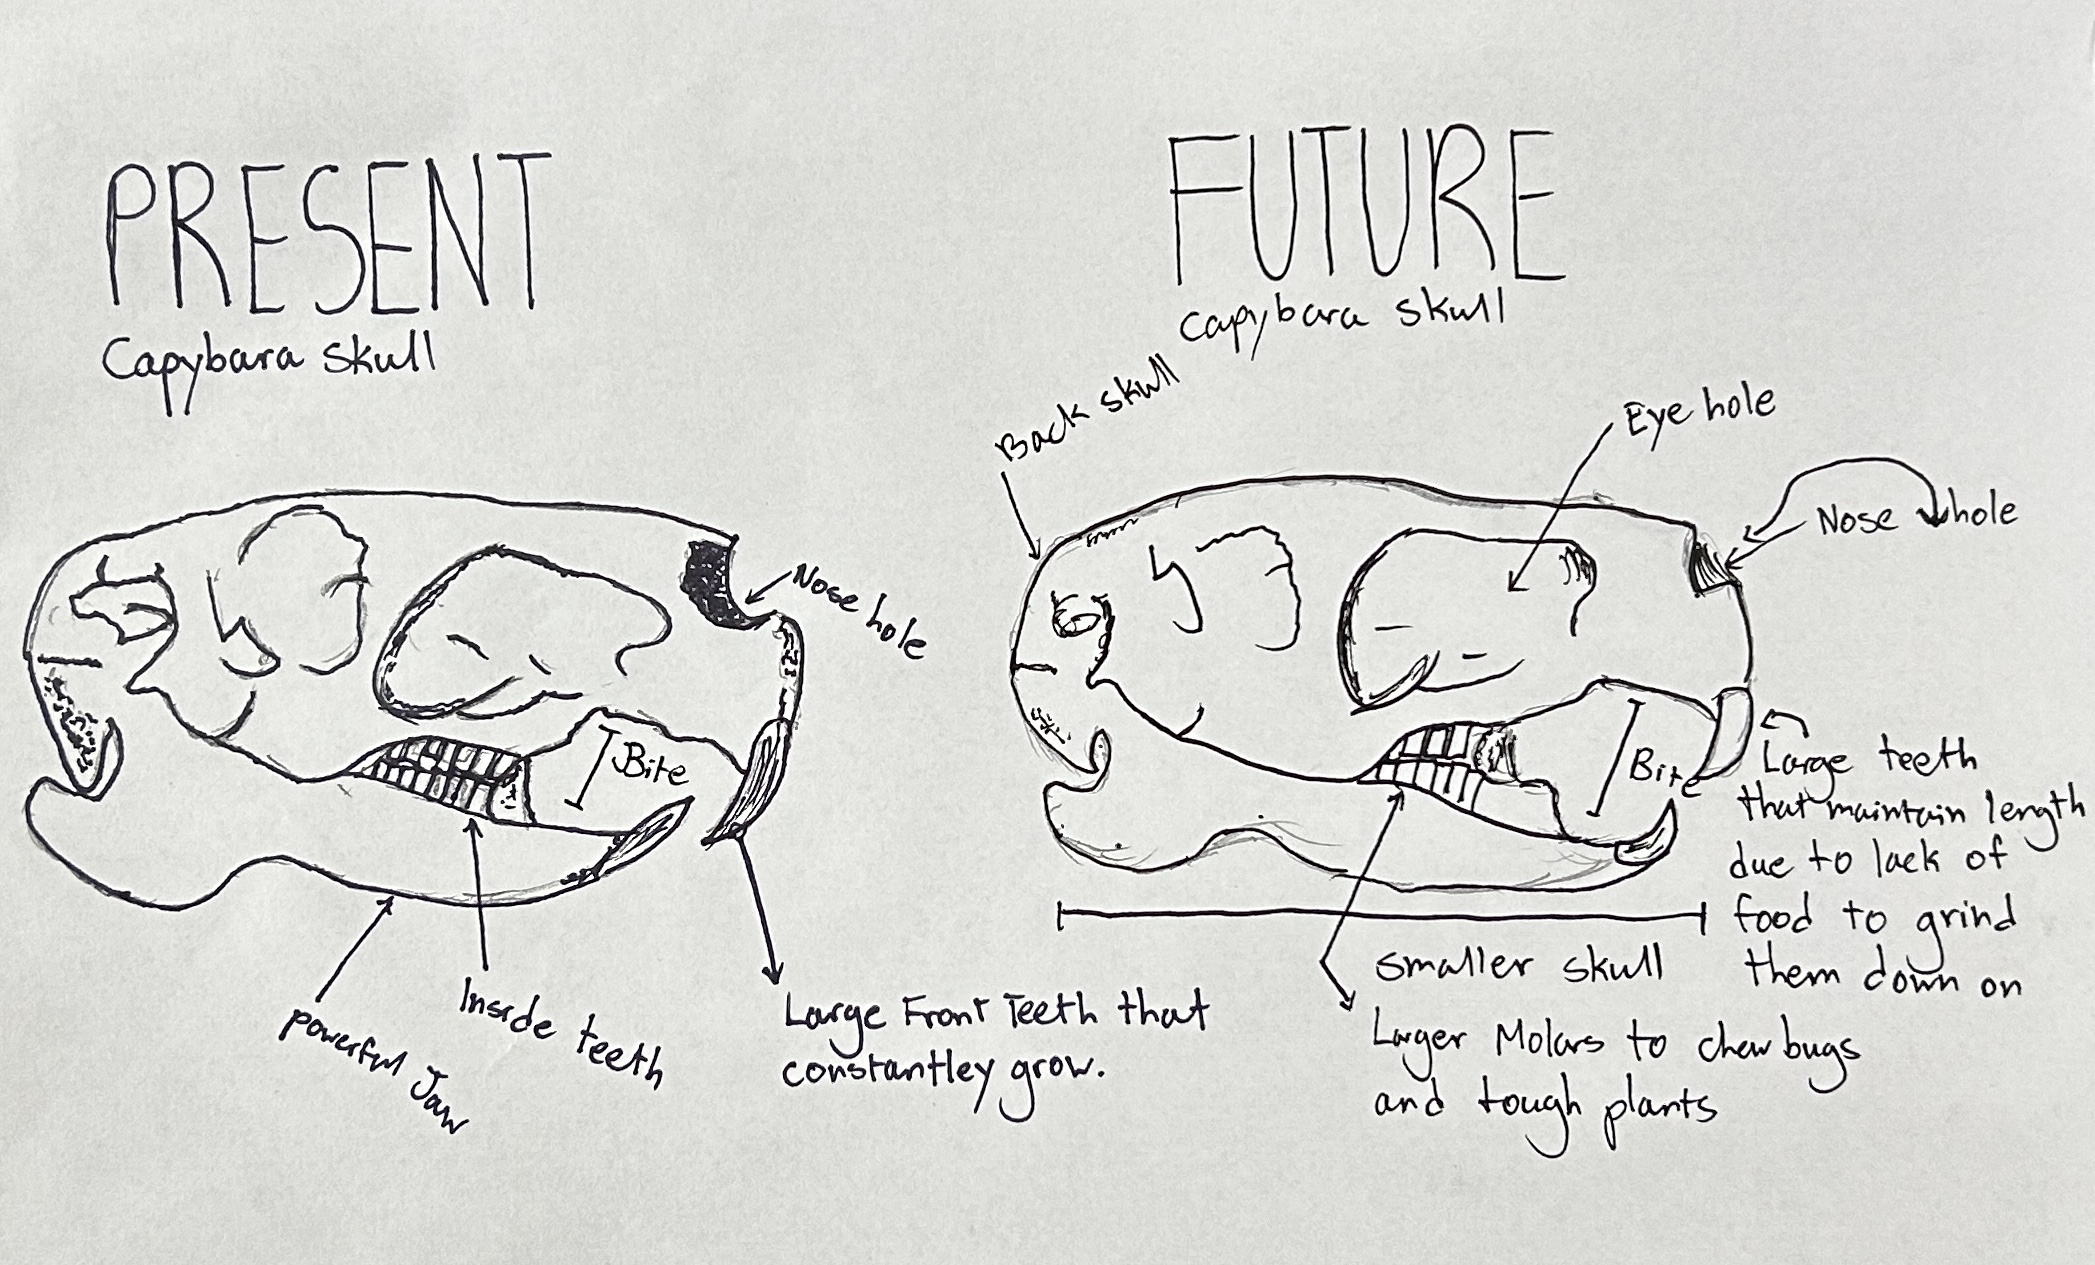 PRESENT
Capybara skull
Nose hole
Bite
Inside teeth
powerful Jaw
Large Front Teeth that
constantley grow.
FUTURE
capybara skull
Back skull
Eye hole
Nose hole
Bite
Large teeth
that maintain length
due to lack of
food to grind
them down on
smaller skull
Larger Molars to chew bugs
and tough plants